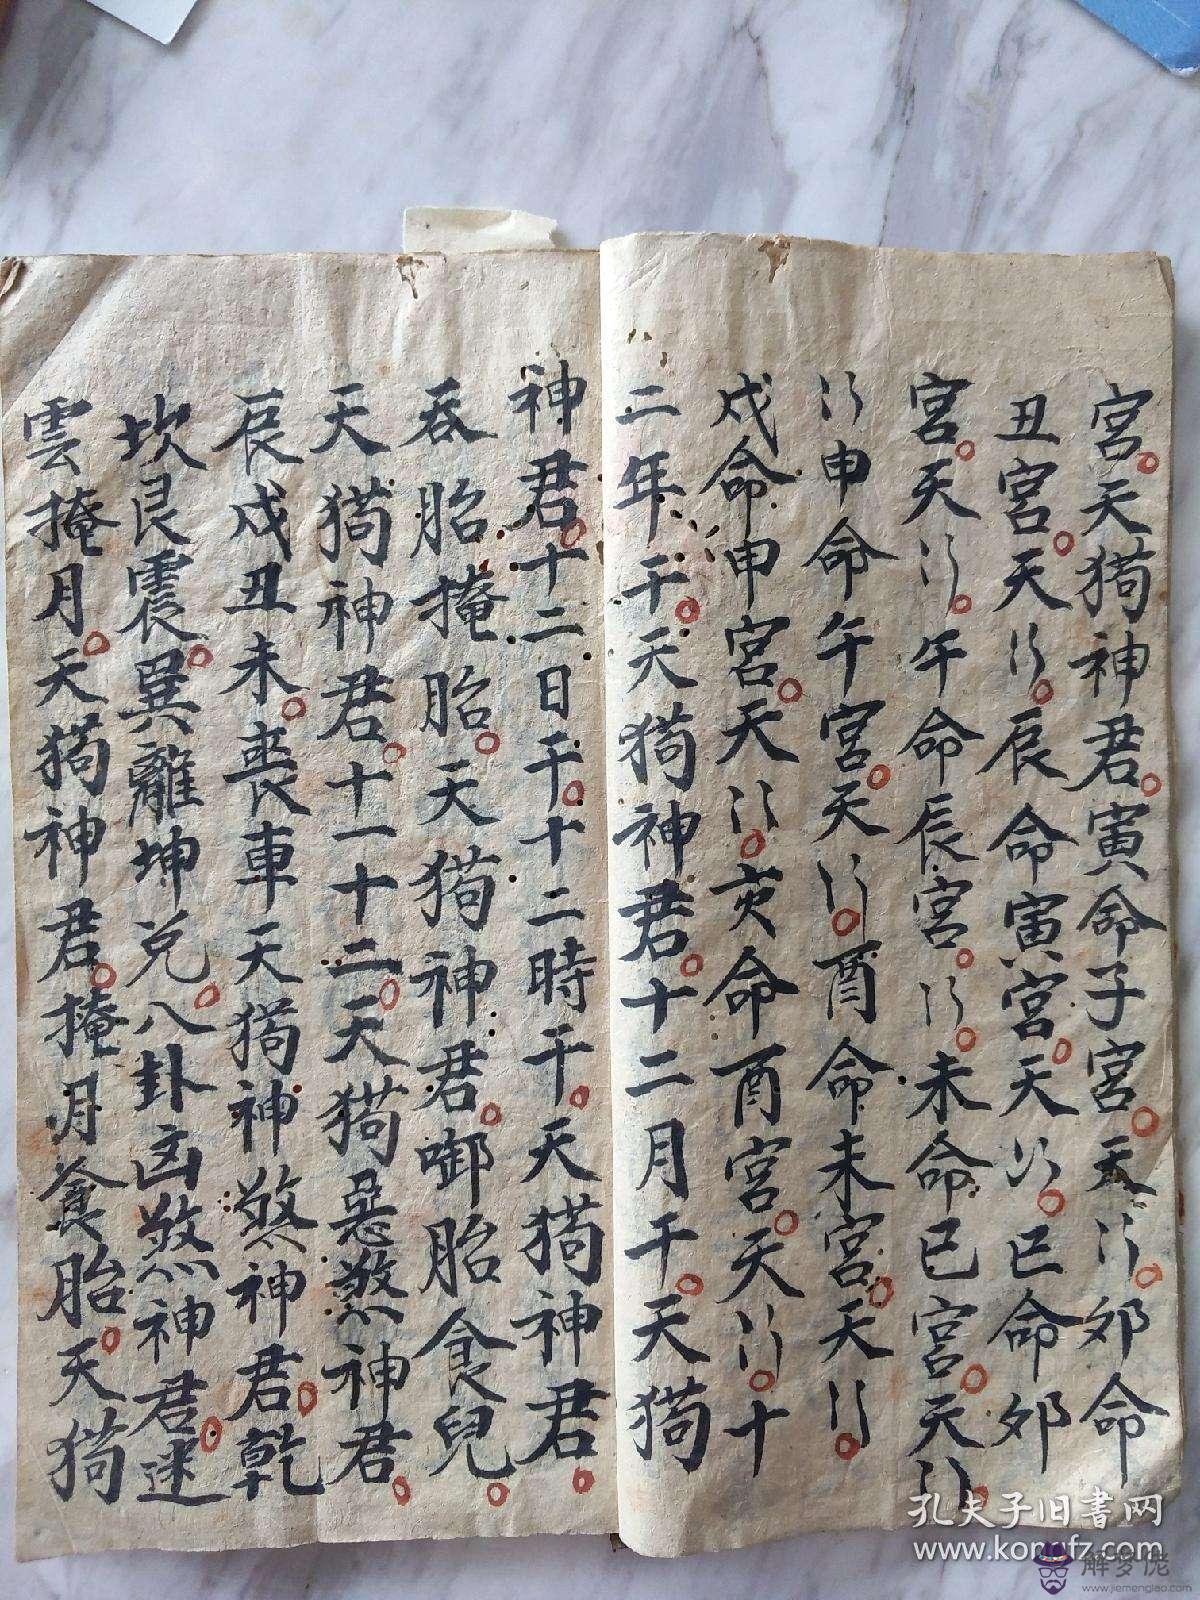 宮。天狗神君。寅命子宮。天〻。卯命
丑宮。天〻。辰命寅宮。天〻。巳命卯
宮。天〻。午命辰宮。〻。未命巳宮。天〻。
〻申命午宮。天〻。酉命未宮。天〻。
戌命申宮。天〻。亥命酉宮。天〻。十
二年干。天狗神君。十二月干。天狗
神君。十二日干。十二時干。天狗神君。
吞胎掩胎。天狗神君。啣胎食兒。
天狗神君。十一十二。天狗惡煞神君。
辰戌丑未。喪車天狗神煞神君。乾
坎艮震。巽離坤兌。八卦凶煞神君。迷
雲掩月。天狗神君。掩月食胎。天狗
孔夫子旧書网
www.kongfz.com
解梦佬
www.jiemenglao.com